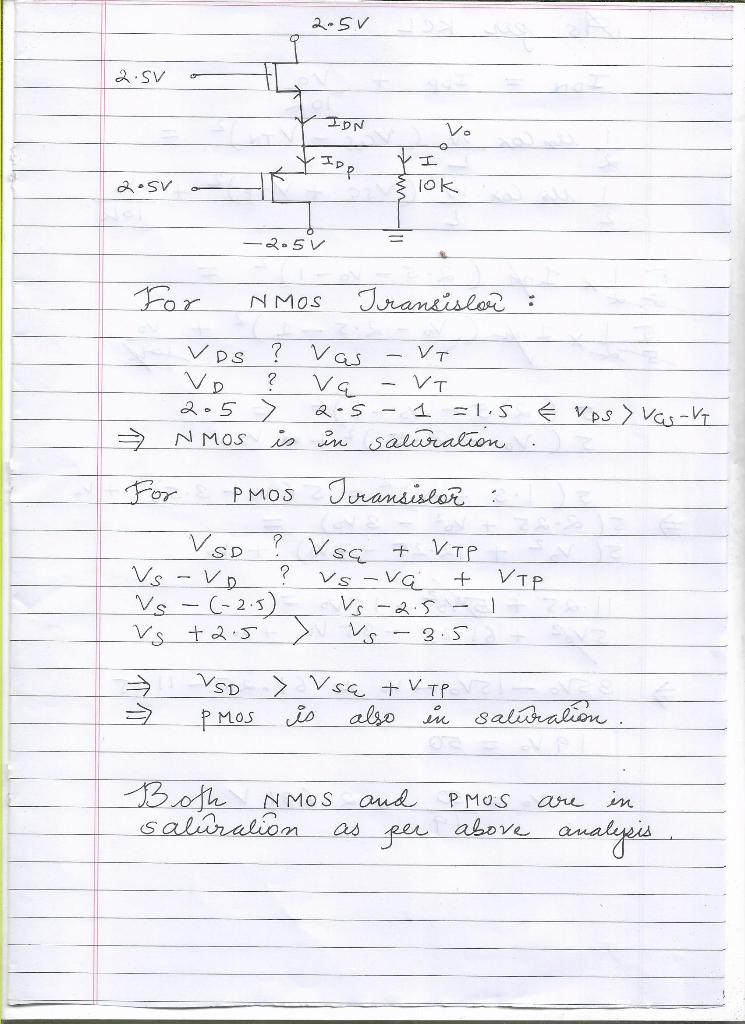 2.5V
2.5V
IDN
Vo
IDp
I
2.5V
10K
-2.5V
For NMOS Transistor :
VDS ? VGS - VT
VD ? VG - VT
2.5 > 2.5 - 1 = 1.5 ⇐ VDS > VGS - VT
⇒ NMOS is in saturation.
For PMOS Transistor :
VSD ? VSG + VTP
VS - VD ? VS - VG + VTP
VS - (-2.5) VS - 2.5 - 1
VS + 2.5 > VS - 3.5
⇒ VSD > VSG + VTP
⇒ PMOS is also in saturation.
Both NMOS and PMOS are in
saturation as per above analysis.